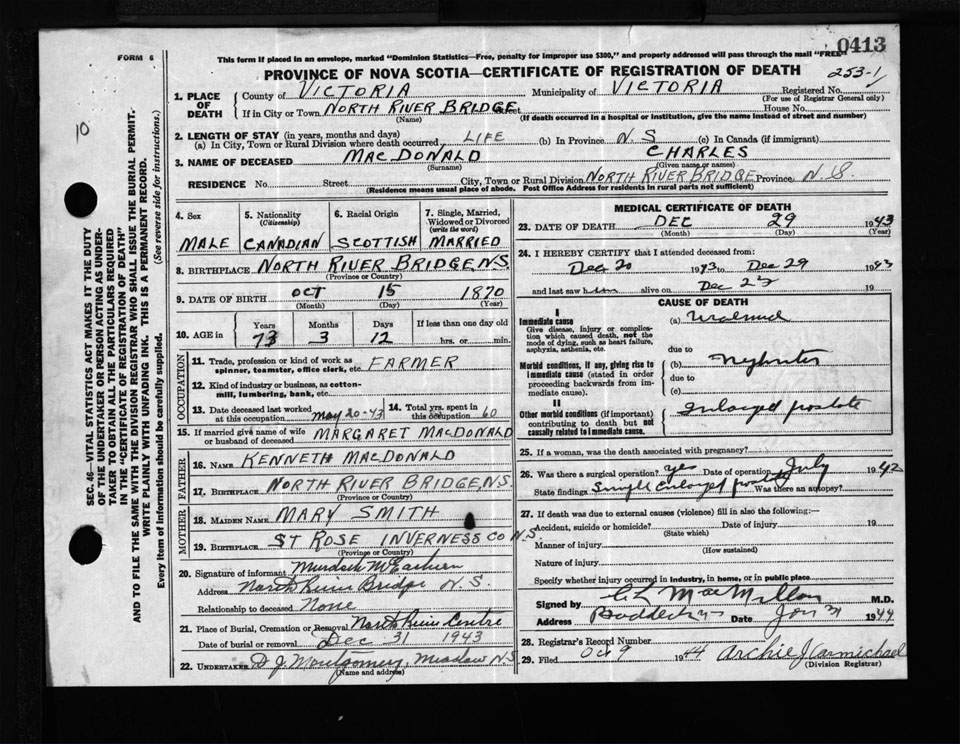 0413
FORM 6
This form if placed in an envelope, marked "Dominion Statistics—Free, penalty for improper use $300," and properly addressed will pass through the mail "FREE"
PROVINCE OF NOVA SCOTIA—CERTIFICATE OF REGISTRATION OF DEATH
253-1
10
SEC. 46—VITAL STATISTICS ACT MAKES IT THE DUTY
OF THE UNDERTAKER OR PERSON ACTING AS UNDER-
TAKER TO OBTAIN ALL THE PARTICULARS REQUIRED
IN THE "CERTIFICATE OF REGISTRATION OF DEATH"
AND TO FILE THE SAME WITH THE DIVISION REGISTRAR WHO SHALL ISSUE THE BURIAL PERMIT.
WRITE PLAINLY WITH UNFADING INK. THIS IS A PERMANENT RECORD.
Every item of information should be carefully supplied. (See reverse side for instructions.)
1. PLACE OF DEATH
County of VICTORIA Municipality of VICTORIA Registered No.
(For use of Registrar General only)
If in City or Town NORTH RIVER BRIDGE Street House No.
(Name) (If death occurred in a hospital or institution, give the name instead of street and number)
2. LENGTH OF STAY (in years, months and days)
(a) In City, Town or Rural Division where death occurred LIFE (b) In Province N.S (c) In Canada (if immigrant)
3. NAME OF DECEASED MACDONALD CHARLES
(Surname) (Given name or names)
RESIDENCE No. Street City, Town or Rural Division NORTH RIVER BRIDGE Province N.S.
(Residence means usual place of abode. Post Office Address for residents in rural parts not sufficient)
4. Sex MALE
5. Nationality (Citizenship) CANADIAN
6. Racial Origin SCOTTISH
7. Single, Married, Widowed or Divorced (write the word) MARRIED
8. BIRTHPLACE NORTH RIVER BRIDGE, N.S.
(Province or Country)
9. DATE OF BIRTH OCT 15 1870
(Month) (Day) (Year)
10. AGE in Years Months Days If less than one day old
73 3 12 hrs. or min.
OCCUPATION
11. Trade, profession or kind of work as spinner, teamster, office clerk, etc. FARMER
12. Kind of industry or business, as cotton-mill, lumbering, bank, etc.
13. Date deceased last worked at this occupation May 20-43 14. Total yrs. spent in this occupation 60
15. If married give name of wife or husband of deceased MARGARET MACDONALD
FATHER
16. NAME KENNETH MACDONALD
17. BIRTHPLACE NORTH RIVER BRIDGE, N.S.
(Province or Country)
MOTHER
18. MAIDEN NAME MARY SMITH
19. BIRTHPLACE ST ROSE INVERNESS CO N.S.
(Province or Country)
20. Signature of informant Murdoch McEachern
Address North River Bridge N.S.
Relationship to deceased None
21. Place of Burial, Cremation or Removal North River Centre
Date of burial or removal Dec 31 1943
22. UNDERTAKER D J Montgomery, Meadow N.S
(Name and address)
MEDICAL CERTIFICATE OF DEATH
23. DATE OF DEATH DEC 29 1943
(Month) (Day) (Year)
24. I HEREBY CERTIFY that I attended deceased from:
Dec 20 1943 to Dec 29 1943
and last saw him alive on Dec 23 19
CAUSE OF DEATH
I
Immediate cause
Give disease, injury or complication which caused death, not the mode of dying, such as heart failure, asphyxia, asthenia, etc.
(a)
due to
Morbid conditions, if any, giving rise to immediate cause (stated in order proceeding backwards from immediate cause).
(b)
due to
(c)
II
Other morbid conditions (if important) contributing to death but not causally related to immediate cause.
Enlarged prostate
25. If a woman, was the death associated with pregnancy?
26. Was there a surgical operation? yes Date of operation July 1942
State findings Simple enlarged prostate Was there an autopsy?
27. If death was due to external causes (violence) fill in also the following:—
Accident, suicide or homicide? Date of injury 19
(State which)
Manner of injury
(How sustained)
Nature of injury
Specify whether injury occurred in industry, in home, or in public place
Signed by C L MacMillan M.D.
Address Baddeck Date Jan 31 1944
28. Registrar's Record Number
29. Filed Oct 9 1944 Archie J Carmichael
(Division Registrar)